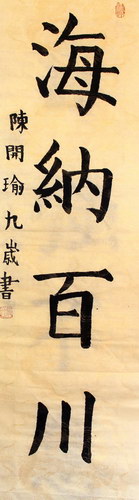 海納百川
陳開瑜九歲書